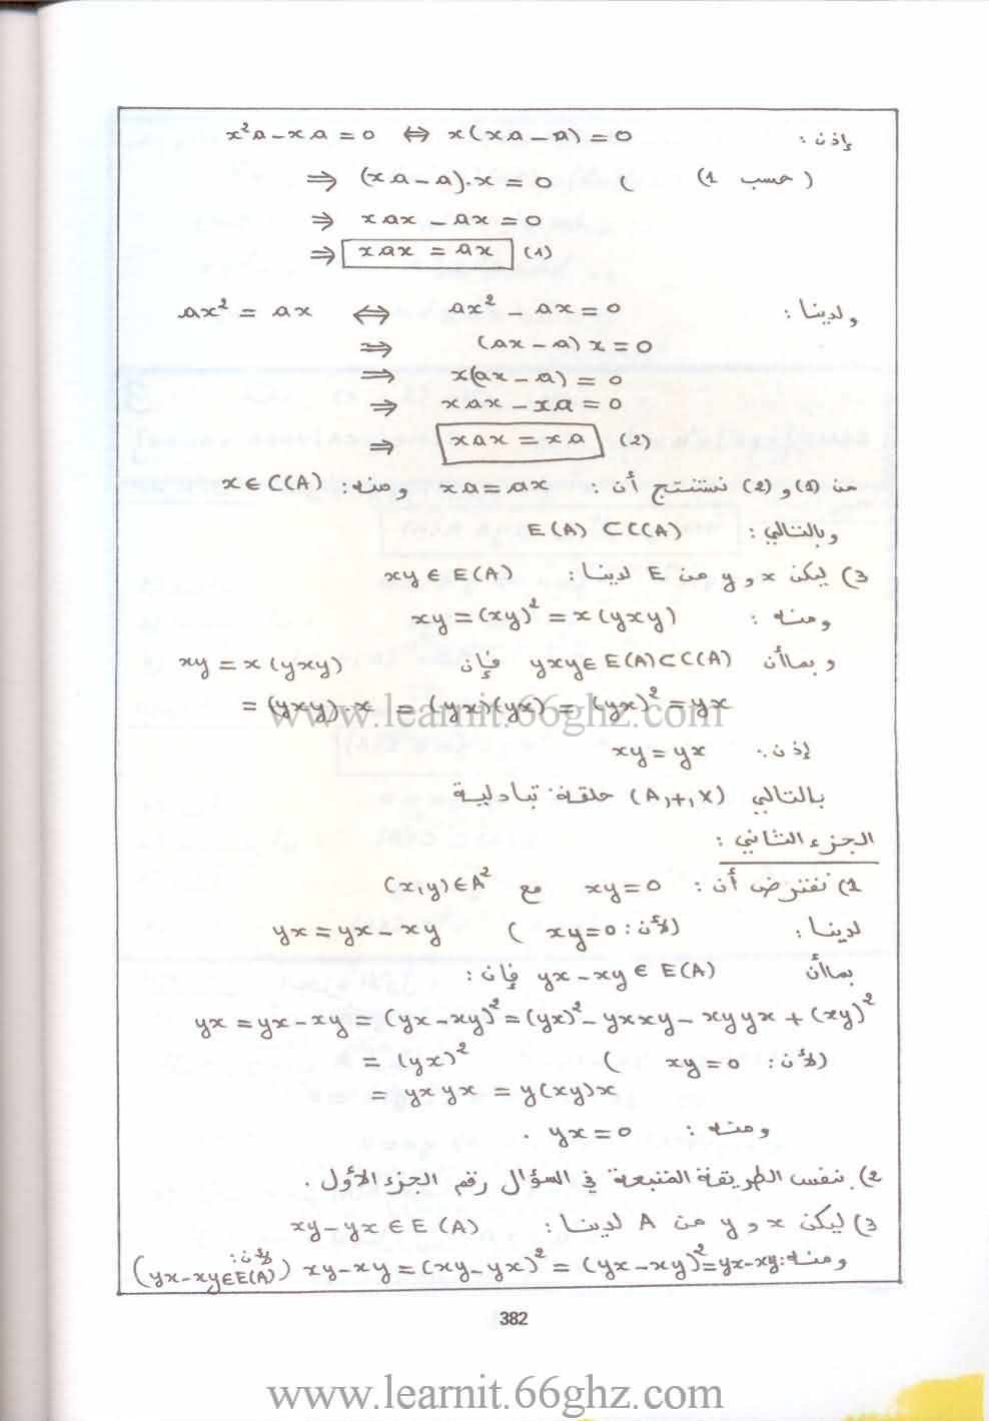 إذن : x²a - xa = 0 ⇔ x(xa - a) = 0
(حسب 1) ⇒ (xa - a).x = 0
⇒ xax - ax = 0
⇒ xax = ax (1)
ولدينا : ax² = ax ⇔ ax² - ax = 0
⇒ (ax - a) x = 0
⇒ x(ax - a) = 0
⇒ xax - xa = 0
⇒ xax = xa (2)
من (1) و (2) نستنتج أن : xa = ax ومنه : x ∈ C(A)
وبالتالي : E(A) ⊂ C(A)
3) ليكن x و y من E لدينا : xy ∈ E(A)
ومنه : xy = (xy)² = x(yxy)
وبما أن yxy ∈ E(A) ⊂ C(A) فإن xy = x(yxy)
= (yxy).x = (yx)(yx) = (yx)² = yx
www.learnit.66ghz.com
إذن : xy = yx
بالتالي (A,+,×) حلقة تبادلية
الجزء الثاني :
1) نفترض أن : xy = 0 مع (x,y) ∈ A²
لدينا : yx = yx - xy (لأن : xy = 0)
بما أن yx - xy ∈ E(A) فإن :
yx = yx - xy = (yx - xy)² = (yx)² - yxxy - xyyx + (xy)²
= (yx)² (لأن : xy = 0)
= yxyx = y(xy)x
ومنه : yx = 0 .
2) بنفس الطريقة المتبعة في السؤال رقم الجزء الأول .
3) ليكن x و y من A لدينا : xy - yx ∈ E(A)
ومنه : xy - xy = (xy - yx)² = (yx - xy)² = yx - xy (لأن : yx - xy ∈ E(A))
382
www.learnit.66ghz.com